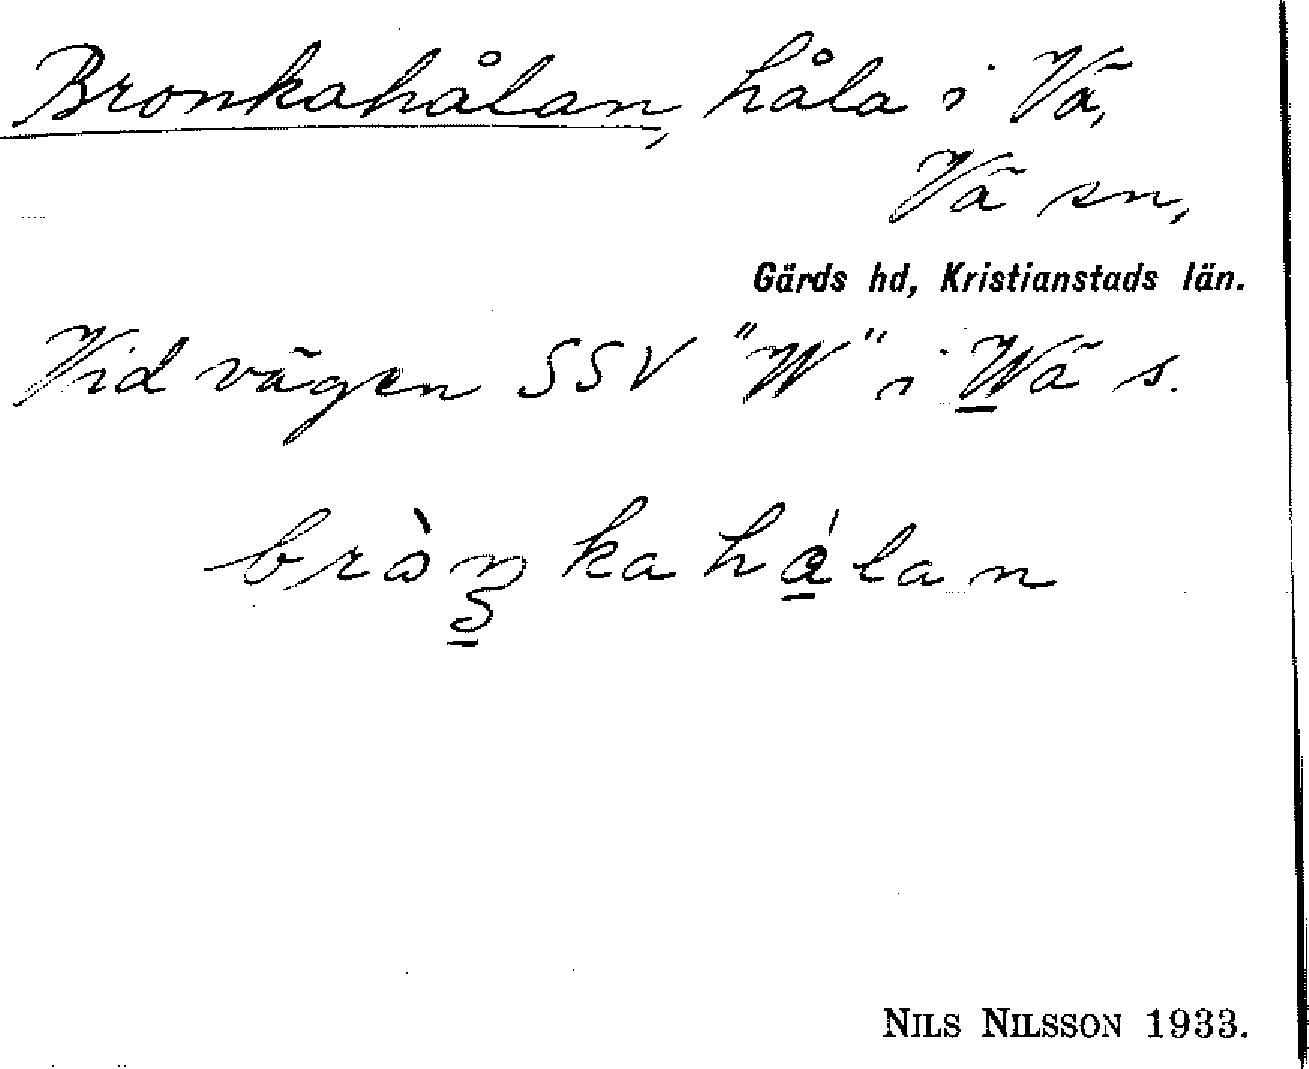 Bronkahålan, håla i Vä,
Vä sn,
Gärds hd, Kristianstads län.
Vid vägen SSV "W" i Wä s.
bròŋkahálan
NILS NILSSON 1933.